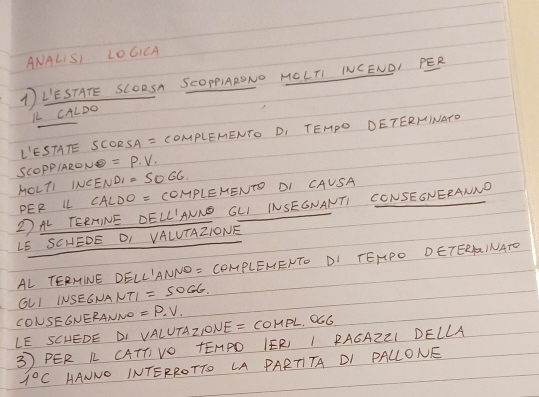 ANALISI LOGICA
1) L'ESTATE SCORSA SCOPPIARONO MOLTI INCENDI PER
IL CALDO
L'ESTATE SCORSA = COMPLEMENTO DI TEMPO DETERMINATO
SCOPPIARONO = P.V.
MOLTI INCENDI = SOGG.
PER IL CALDO = COMPLEMENTO DI CAUSA
2) AL TERMINE DELL'ANNO GLI INSEGNANTI CONSEGNERANNO
LE SCHEDE DI VALUTAZIONE
AL TERMINE DELL'ANNO = COMPLEMENTO DI TEMPO DETERMINATO
GLI INSEGNANTI = SOGG.
CONSEGNERANNO = P.V.
LE SCHEDE DI VALUTAZIONE = COMPL. OGG
3) PER IL CATTIVO TEMPO IERI I RAGAZZI DELLA
1°C HANNO INTERROTTO LA PARTITA DI PALLONE